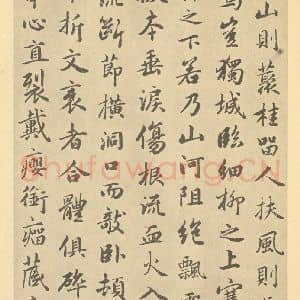 山則藂桂留人扶風則
馬豈獨城臨細柳之上塞
之下若乃山河阻絕飄
拔本垂淚傷根流血火入
流斷節橫洞口而敧卧頓
半折文衺者合體俱碎
中心直裂戴癭銜瘤藏
Shufawang.CN